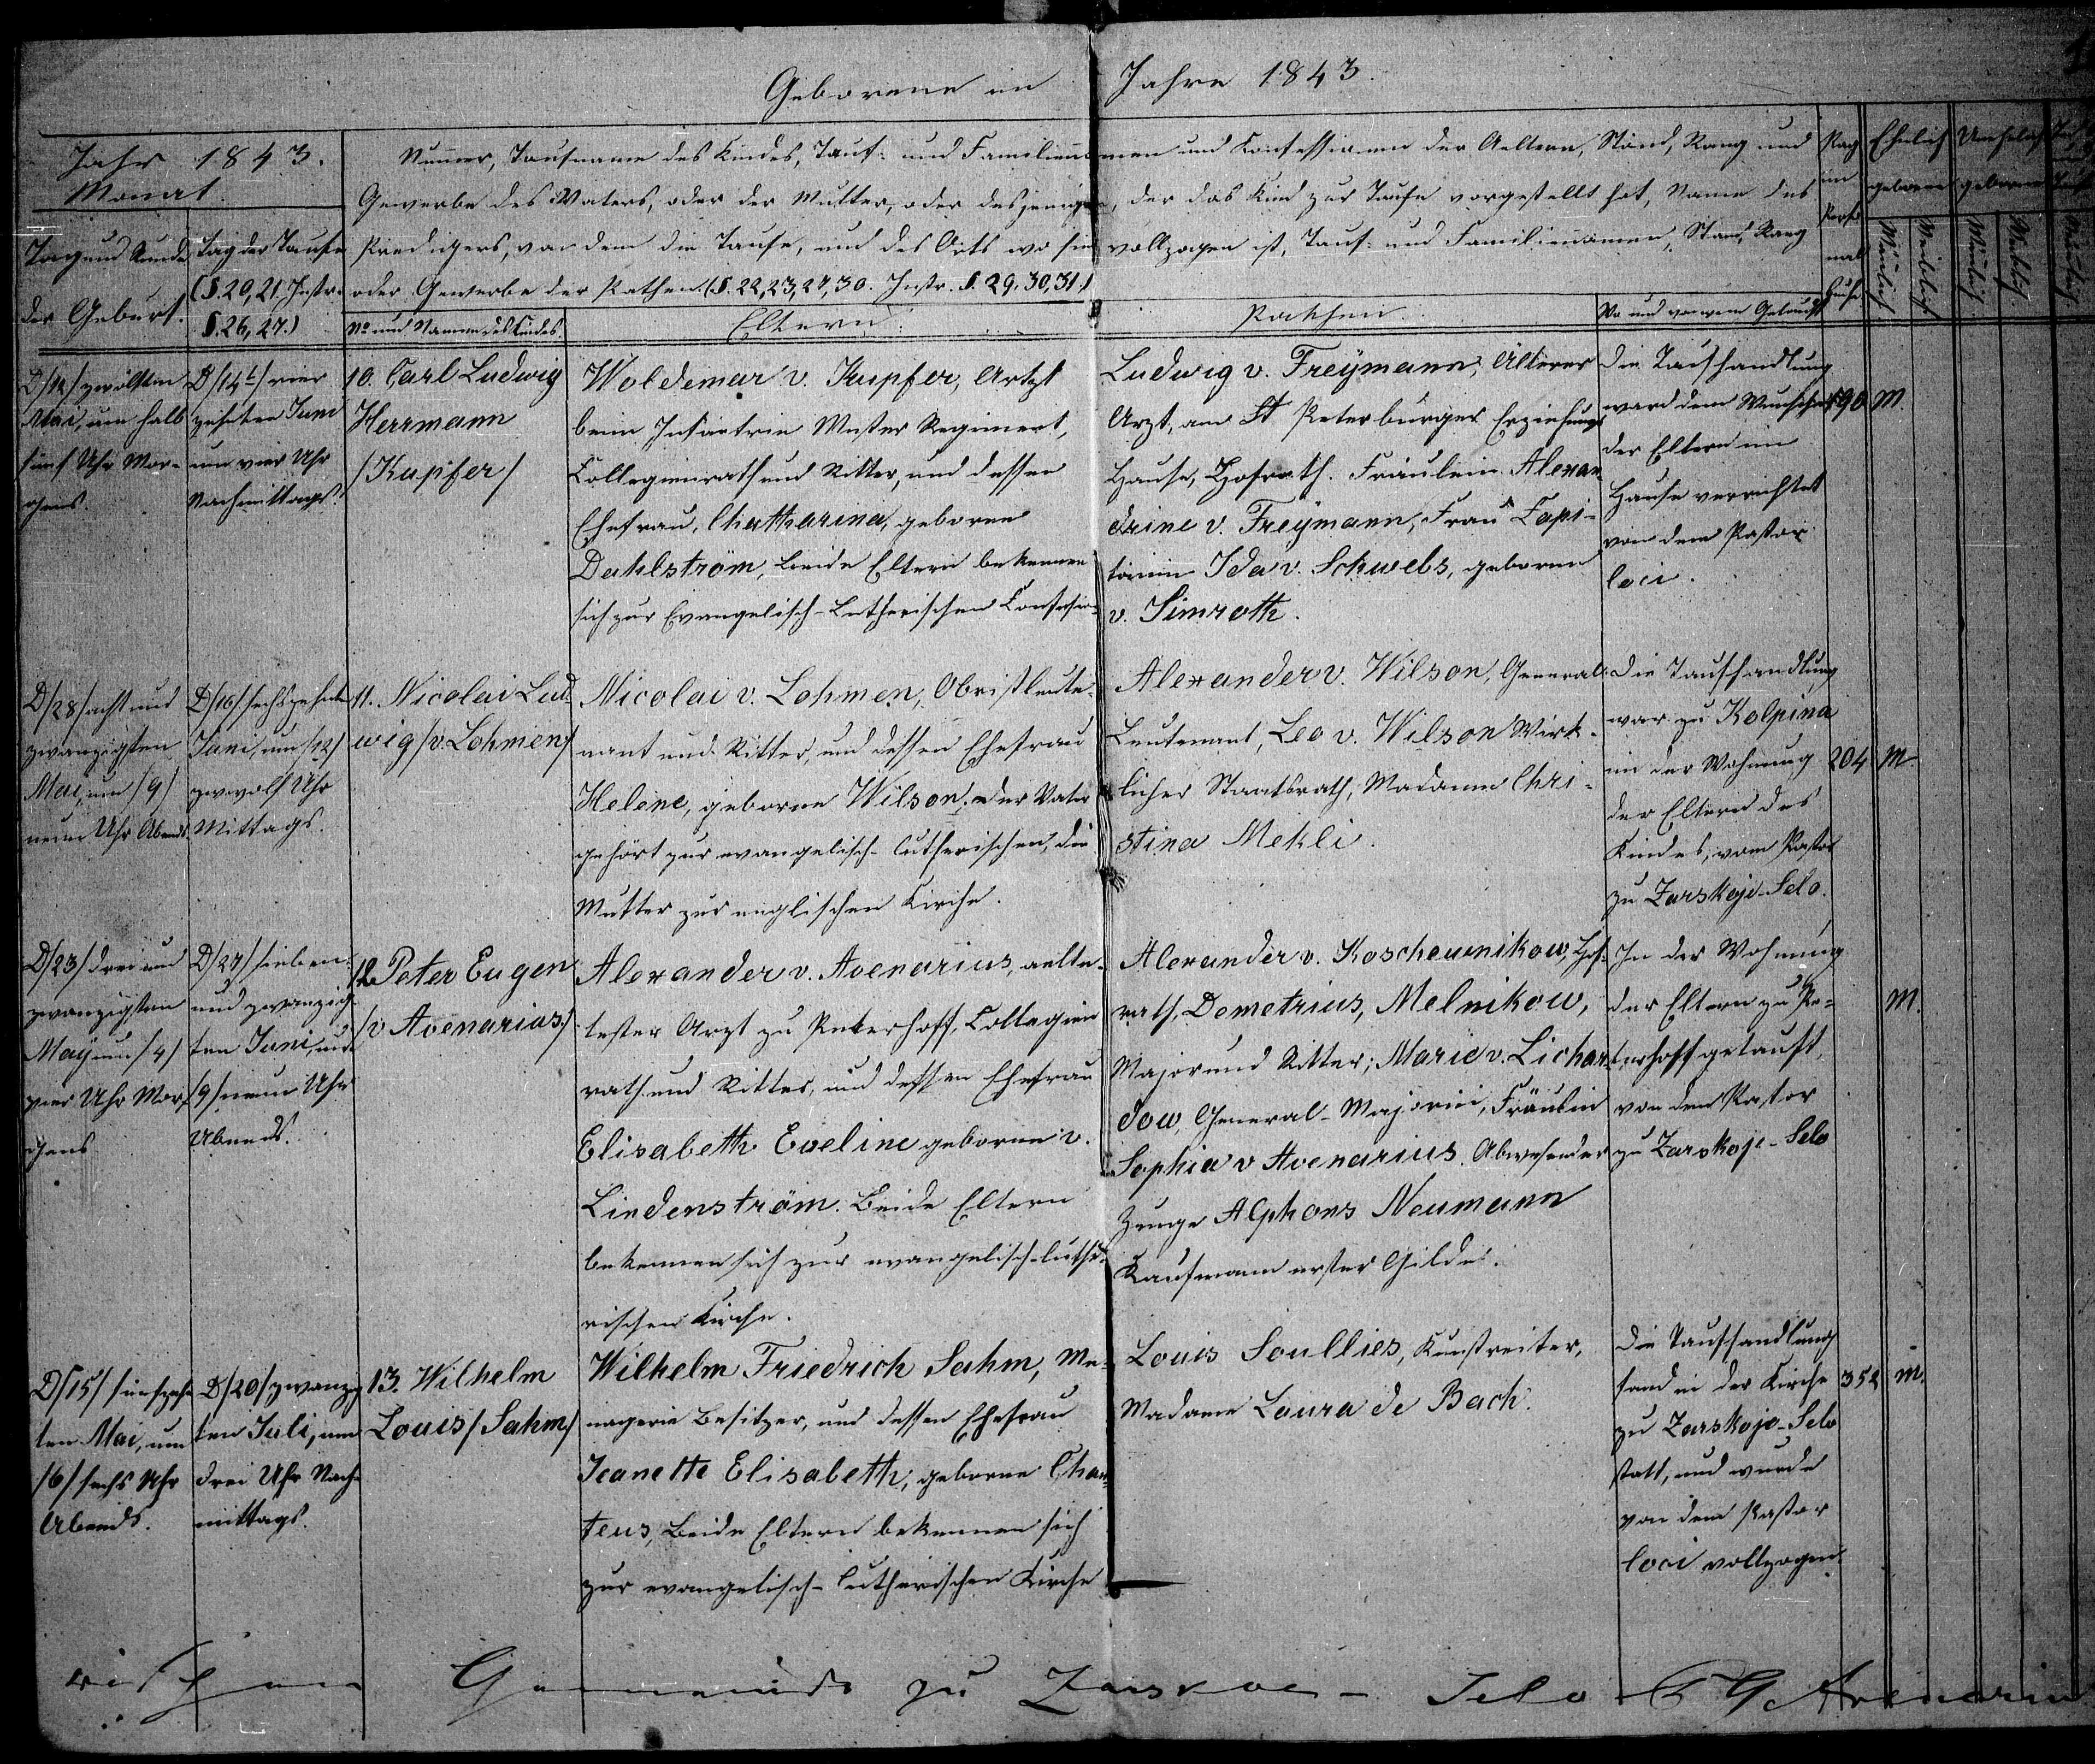 Geborene im Jahre 1843.
Jahr 1843.
Monat.
Tag und Stunde
der Geburt.
Tag der Taufe
(§. 20, 21. Instr.
§. 26, 27.)
Numer, Taufname des Kindes, Tauf- und Familiennamen und Confessionen der Aeltern, Stand, Rang und
Gewerbe des Vaters, oder der Mutter, oder desjenigen, der das Kind zur Taufe vorgestellt hat, Name des
Predigers, von dem die Taufe, und des Orts wo sie vollzogen ist, Tauf- und Familiennamen, Stand, Rang
oder Gewerbe der Pathen. (§. 22, 23, 27, 30. Instr. §. 29. 30, 31.)
No und Namen des Kindes.
Eltern.
Pathen.
Wo und von wem Getauft
Pag
im
Perso
nal
buche
Ehelich
geboren
Unehelich
geboren
Männlich
Weiblich
Männlich
Weiblich
D/12/ zwölften
Mai, um halb
fünf Uhr Mor-
gens.
D/14t/ vier
zehnten Juni
um vier Uhr
Nachmittags.
10. Carl Ludwig
Herrmann
/Kupfer/
Woldemar v. Kupfer, Artzt
beim Infantrie Muster Regiment,
Collegienrath und Ritter, und dessen
Ehefrau, Chatharina, geborne
Dahlström, beide Eltern bekennen
sich zur Evangelisch-Lutherischen Confession
Ludwig v. Freymann, Älterer
Arzt, am St Peterburger Erziehungs
Hause, Hofrath. Fräulein Alexan
drine v. Freymann, Frau Capi-
tänin Ida v. Schwebs, geborne
v. Simroth.
Die Taufhandlung
ward dem Wunsche
der Eltern im
Hause verrichtet
von dem Pastor
loci.
190 M.
D/28/ acht und
zwanzigsten
Mai, um /9/
neun Uhr Abends.
D/16/ sechszehnten
Juni, um /12/
zwwolf Uhr
Mittags.
11. Nicolai Lud-
wig /v. Lohmen/
Nicolai v. Lohmen, Obristleute-
nant und Ritter, und dessen Ehefrau
Helene, geborne Wilson. der Vater
gehört zur evangelisch-lutherischen, die
Mutter zur englischen Kirche.
Alexander v. Wilson, General-
Leutenant, Leo v. Wilson Wirk-
licher Staatsrath, Madame Chri-
stina Mekli.
Die Taufhandlung
war zu Kolpina
in der Wohnung
der Eltern des
Kindes, vom Pastor
zu Zarskoje-Selo.
204 M
D/23/ drei und
zwanzigsten
May um /4/
vier Uhr Mor-
gens
D/27/ sieben-
und zwanzig-
ten Juni, um
/9/ neun Uhr
Abends.
12. Peter Eugen
/v Avenarius/
Alexander v. Avenarius, aelte-
tester Arzt zu Peterhoff, Collegien
rath und Ritter, und dessen Ehefrau
Elisabeth Eveline geborne v.
Lindenström. Beide Eltern
bekennen sich zur evangelisch-luthe-
rischen Kirche.
Alexander v. Koscheurnikow, Hof-
rath, Demetrius, Melnikow,
Major und Ritter; Marie v. Lichar-
dow, General-Majorin, Fräulein
Sophia v Avenarius. Abwesender
Zeuge Alphons Neumann
Kaufmann erster Gilde.
In der Wohnung
der Eltern zu Pe-
terhoff getauft,
von dem Pastor
zu Zarskoje-Selo
M.
D/15/ fünfzehn
ten Mai, um
/6/ sechs Uhr
Abends.
D/20/ zwanzig
ten Juli, um
drei Uhr Nach-
mittags.
13. Wilhelm
Louis /Sahm/
Wilhelm Friedrich Sahm, Me-
nagerie Besitzer, und dessen Ehefrau
Jeanette Elisabeth, geborne Chan
teus, Beide Eltern bekennen sich
zur evangelisch-lutherischen Kirche
Louis Soullies, Kunstreiter,
Madame Laura de Bach.
Die Taufhandlung
fand in der Kirche
zu Zarskoje-Selo
statt, und wurde
von dem Pastor
loci vollzogen.
352 M.
rischen Gemeinde zu Zarskoe-Selo